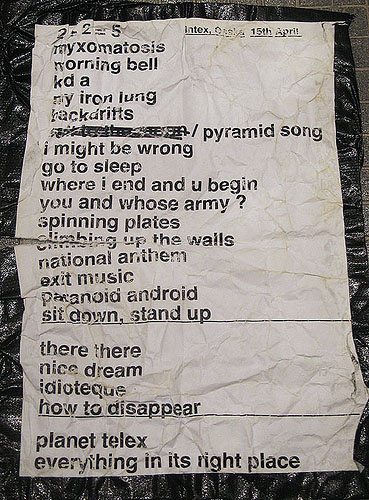 2+2=5
Intex, Osaka 15th April
myxomatosis
morning bell
kd a
my iron lung
backdrifts
/ pyramid song
i might be wrong
go to sleep
where i end and u begin
you and whose army ?
spinning plates
climbing up the walls
national anthem
exit music
paranoid android
sit down, stand up
there there
nice dream
idioteque
how to disappear
planet telex
everything in its right place